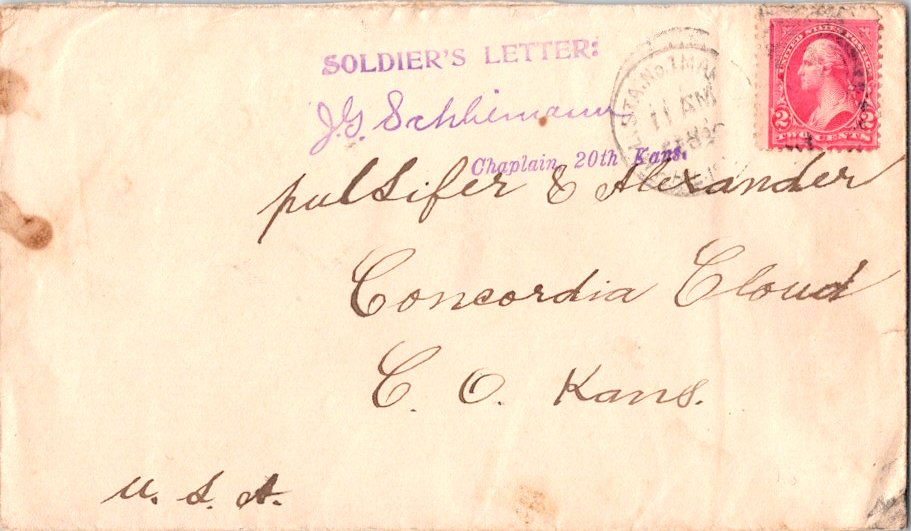 SOLDIER'S LETTER:
J.G. Schliemann
Chaplain, 20th Kans.
11 AM
UNITED STATES POSTAGE
2 2
TWO CENTS
pulsifer & Alexander
Concordia Cloud
C. O. Kans.
U. S. A.